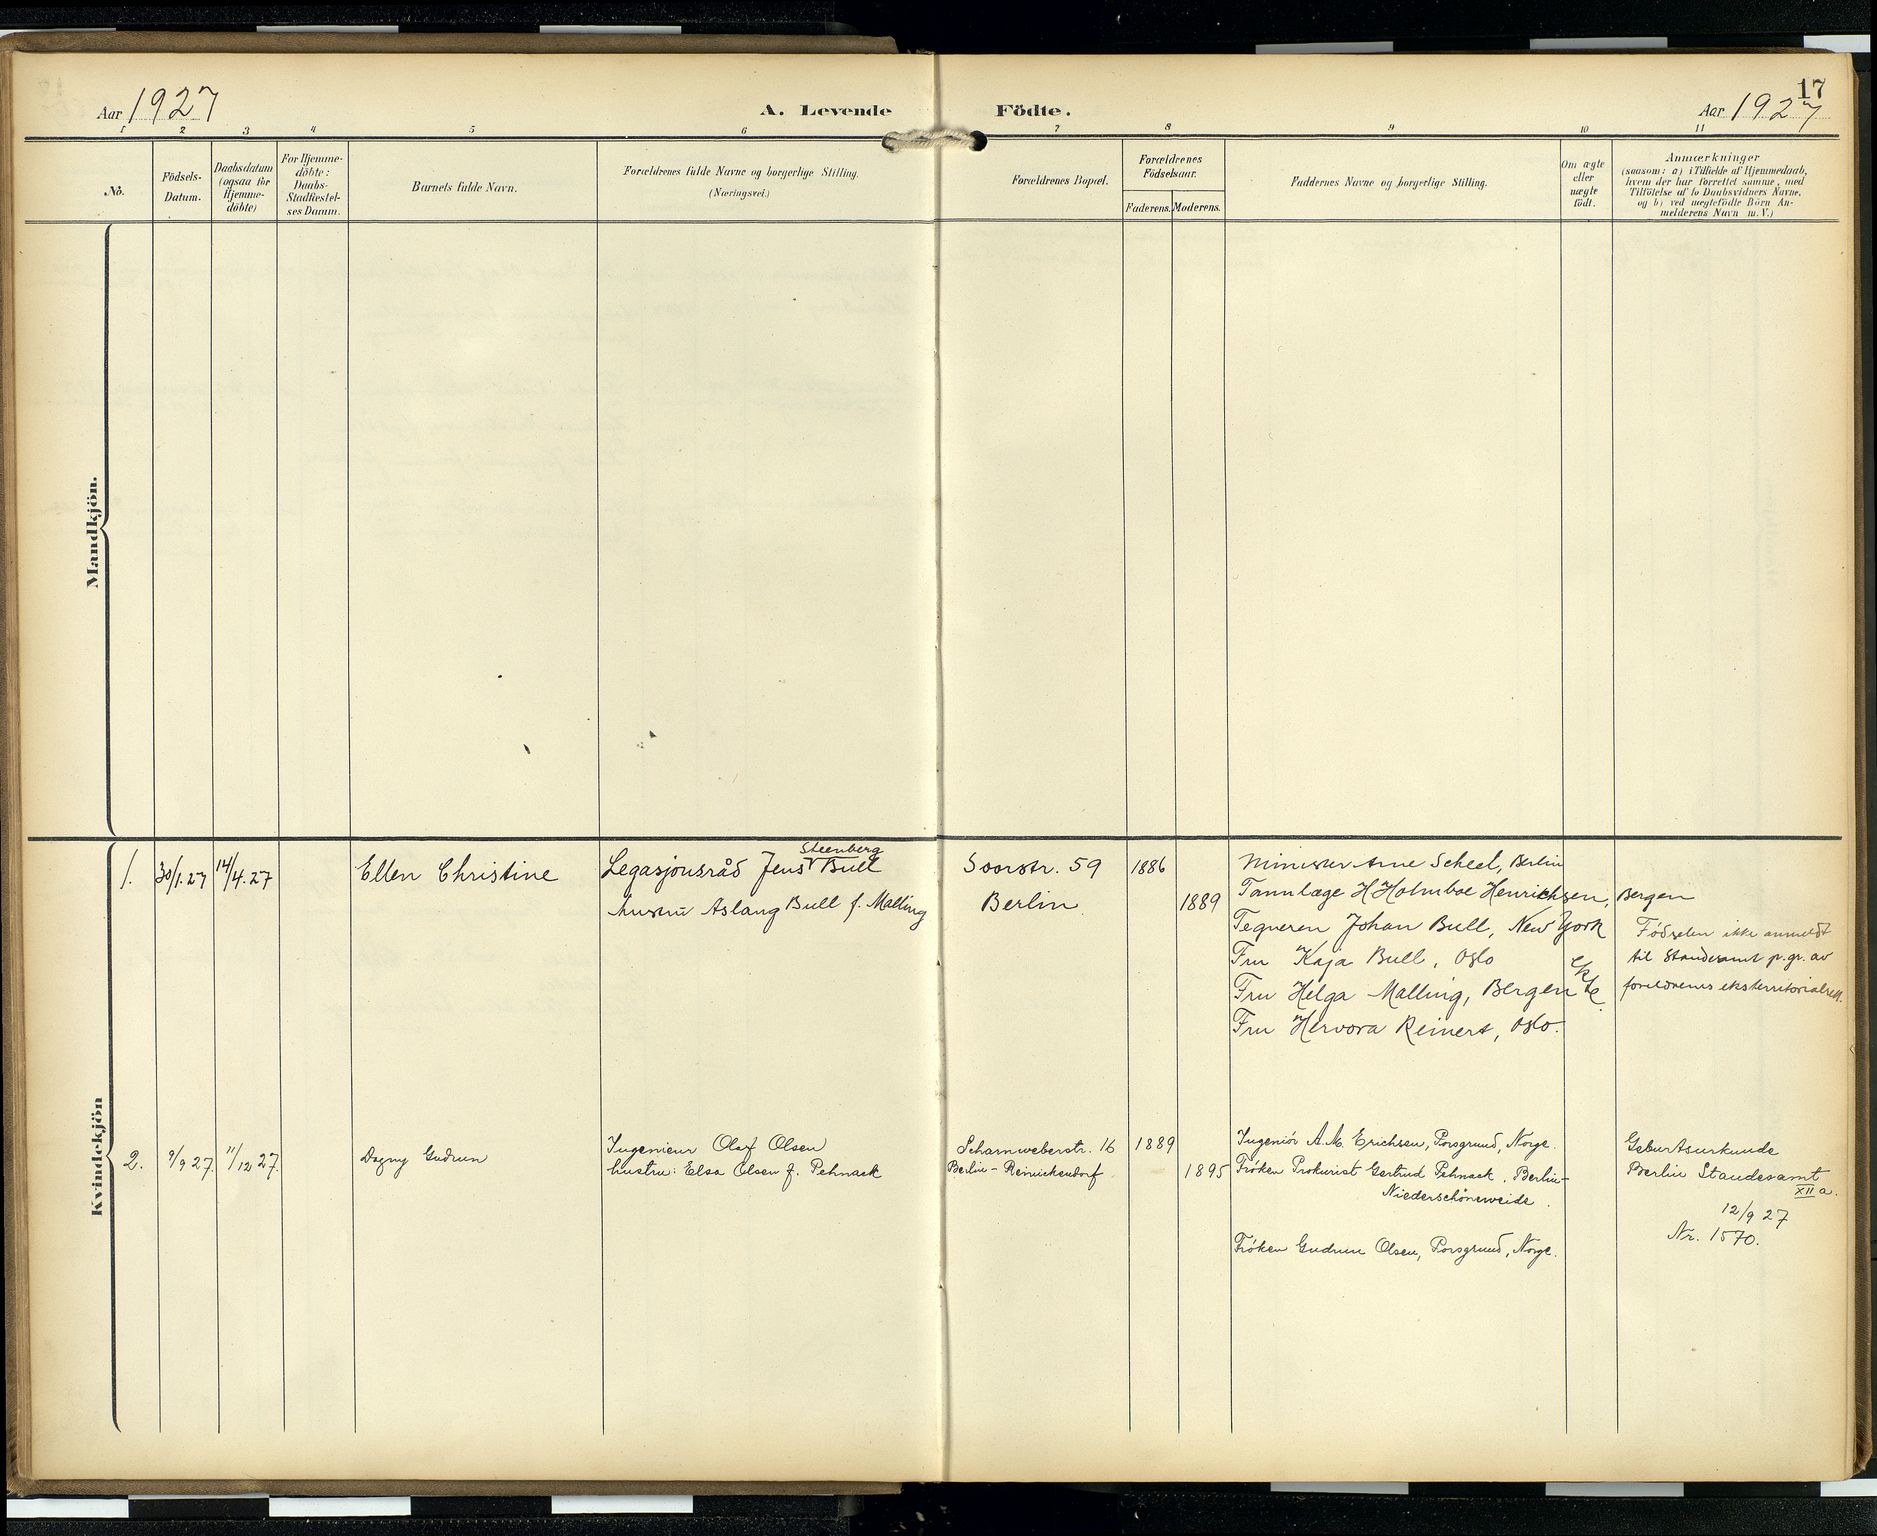 17
Aar 1927
A. Levende Födte.
Aar 1927
1 2 3 4 5 6 7 8 9 10 11
No.
Födsels-
Datum.
Daabsdatum
(ogsaa for
Hjemme-
döbte)
For Hjemme-
döbte:
Daabs-
Stadfæstel-
ses Datum.
Barnets fulde Navn.
Forældrenes fulde Navne og borgerlige Stilling.
(Næringsvei.)
Forældrenes Bopæl.
Forældrenes
Födselsaar.
Faderens. Moderens.
Faddernes Navne og borgerlige Stilling.
Om ægte
eller
uægte
födt.
Anmærkninger
(saasom: a) i Tilfælde af Hjemmedaab,
hvem der har forrettet samme, med
Tilföielse af to Daabsvidners Navne,
og b) ved uægtefödte Börn An-
melderens Navn m. V.)
Mandkjön.
Kvindekjön
1.
30/1.27
14/4.27
Ellen Christine
Steenberg
Legasjonsråd Jens Bull
hustru Aslaug Bull f. Malling
Soorstr. 59
Berlin
1886
1889
Minister Arne Scheel, Berlin
Tannlæge H Holmboe Henrichsen, Bergen
Tegneren Johan Bull, New York
Fru Kaja Bull, Oslo
Fru Helga Malling, Bergen
Fru Hervora Reinert, Oslo.
Ekte
Fødselen ikke anmeldt
til Standesamt p.gr. av
foreldrenes eksterritorialrett.
2.
9/9 27.
11/12 27.
Dagny Gudrun
Ingenieur Olaf Olsen
hustru: Elsa Olsen f. Pehnack
Scharnweberstr. 16
Berlin-Reinickendorf
1889
1895
Ingeniör A. M. Erichsen, Porsgrund, Norge.
Frøken Prokurist Gertrud Pehnack, Berlin-
Niederschöneweide.
Frøken Gudrun Olsen, Porsgrund, Norge.
Geburtsurkunde
Berlin Standesamt
XII a.
12/9 27
Nr. 1570.